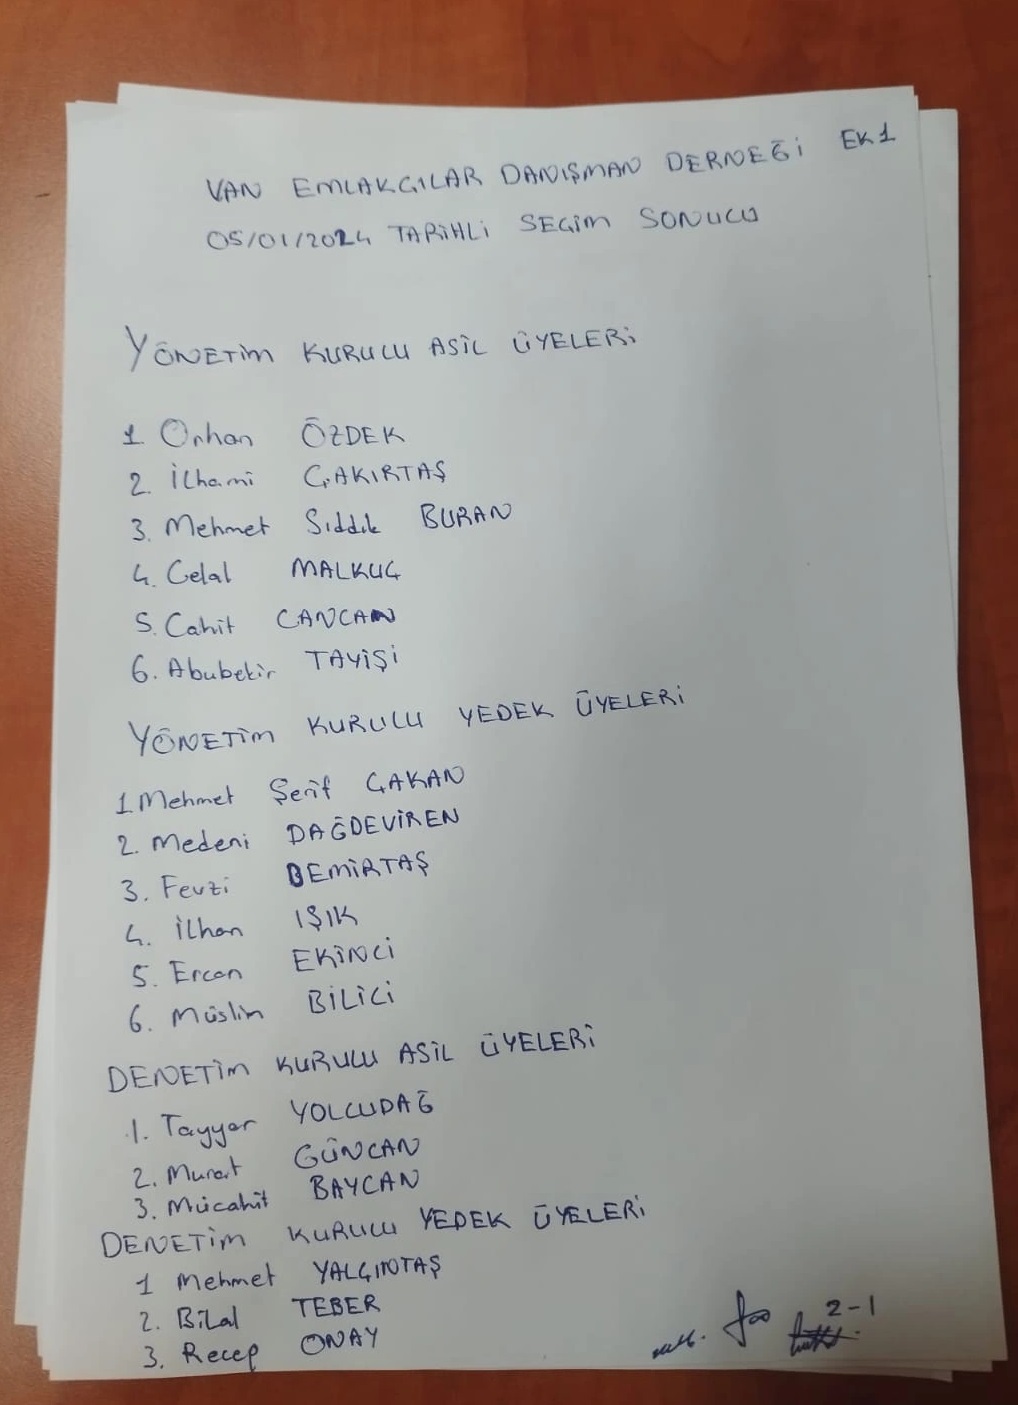 VAN EMLAKÇILAR DANIŞMAN DERNEĞİ EK1
05/01/2024 TARİHLİ SEÇİM SONUCU
YÖNETİM KURULU ASİL ÜYELERİ
1 Orhan ÖZDEK
2. İlhami ÇAKIRTAŞ
3. Mehmet Sıddık BURAN
4. Celal MALKUÇ
5. Cahit CANCAN
6. Abubekir TAYİŞİ
YÖNETİM KURULU YEDEK ÜYELERİ
1 Mehmet Şerif ÇAKAN
2. Medeni DAĞDEVİREN
3. Fevzi DEMİRTAŞ
4. İlhan IŞIK
5. Ercan EKİNCİ
6. Müslin BİLİCİ
DENETİM KURULU ASİL ÜYELERİ
1. Tayyar YOLCUDAĞ
2. Murat GÜNCAN
3. Mücahit BAYCAN
DENETİM KURULU YEDEK ÜYELERİ
1 Mehmet YALÇINTAŞ
2. Bilal TEBER
3. Recep ONAY
2-1